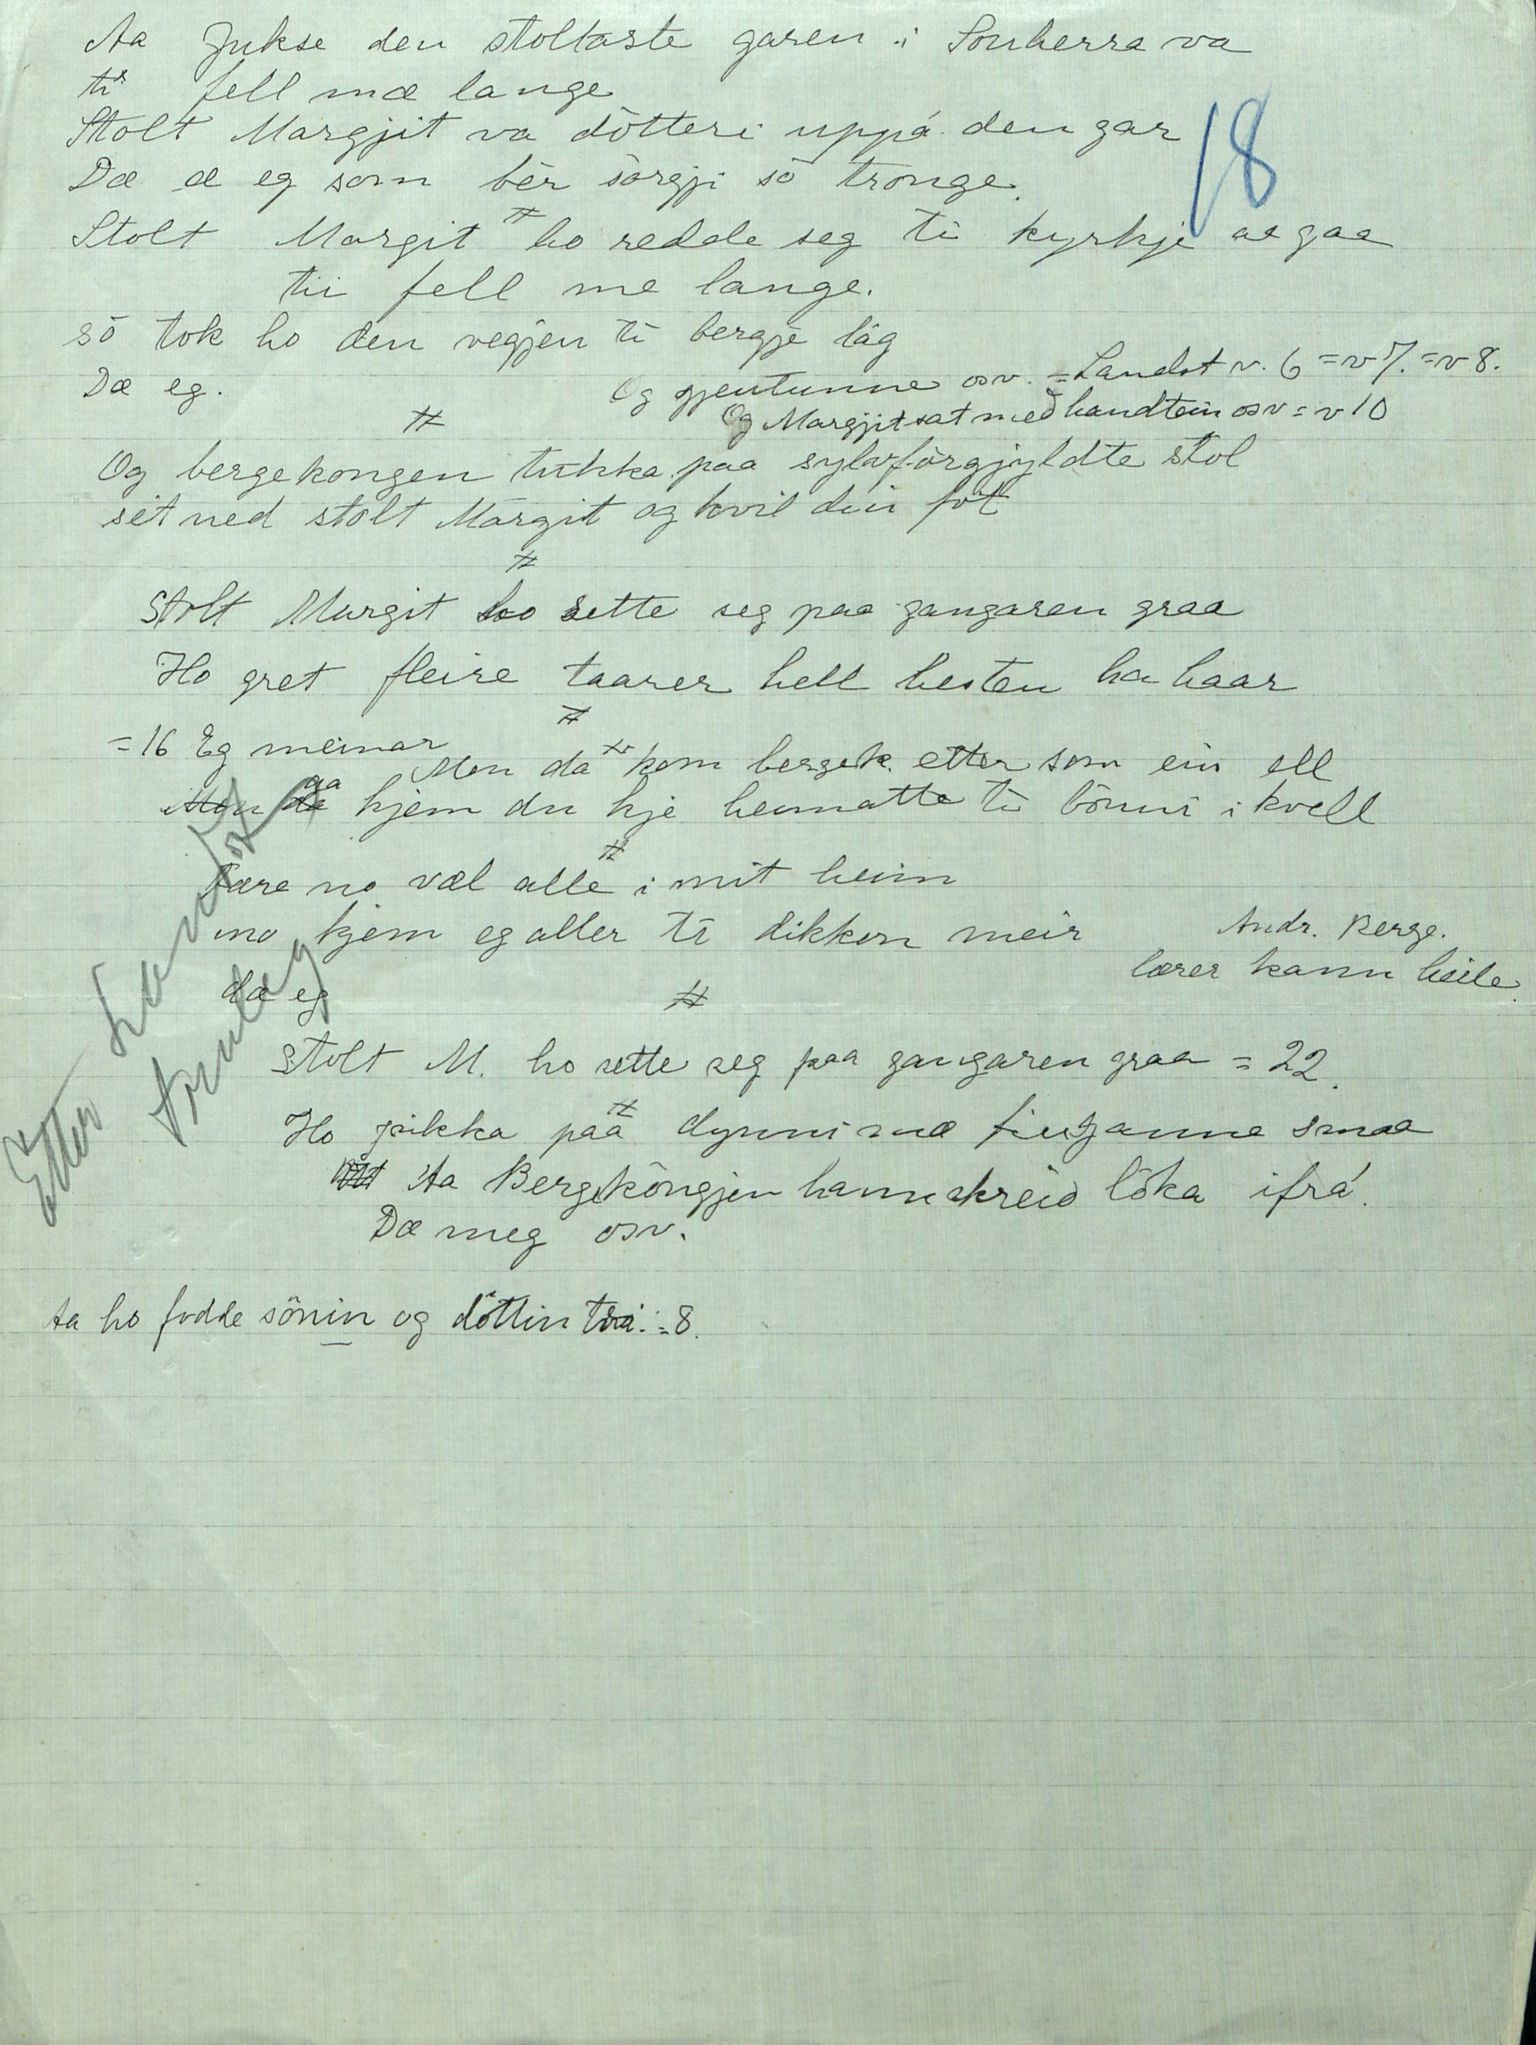 Aa Jukse den stoltaste garen i Souherra va
ti fell mæ lange
18
Stolt Margjit va dötteri uppá den gar
Dæ æ eg som bèr sörgji sö tronge.
Stolt Margit ho redde seg ti kyrkje aa gaa
tii fell me lange.
sö tok ho den vegjen ti bergje låg
Dæ eg.
Og gjentunne osv. = Landst v. 6 = v 7. = v 8.
Og Margjit sat med handtein osv = v 10
Og bergekongen tukka paa sylvförgjyldte stol
set ned stolt Margit og kvil din fot
Stolt Margit ho sette seg paa gangaren graa
Ho gret fleire taarer hell hesten ha haar
= 16 Eg meinar
Men da kom bergek. etter som ein ell
kjem du kje heimatte ti bönni i kvell
Fare no væl alle i mit heim
no kjem eg aller ti dikkon meir
Andr. Berge.
lærer kann heile.
dæ eg
Stolt M. ho sette seg paa gangaren graa = 22.
Ho pikka paa dynni mæ finganne smaa
Aa Bergeköngjen hann skreid löka ifrá.
Dæ meg osv.
Aa ho fødde sönin og döttin = 8.
Etter Landst